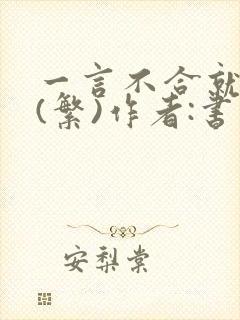 一言不合就
(繁)作者:書
安梨棠